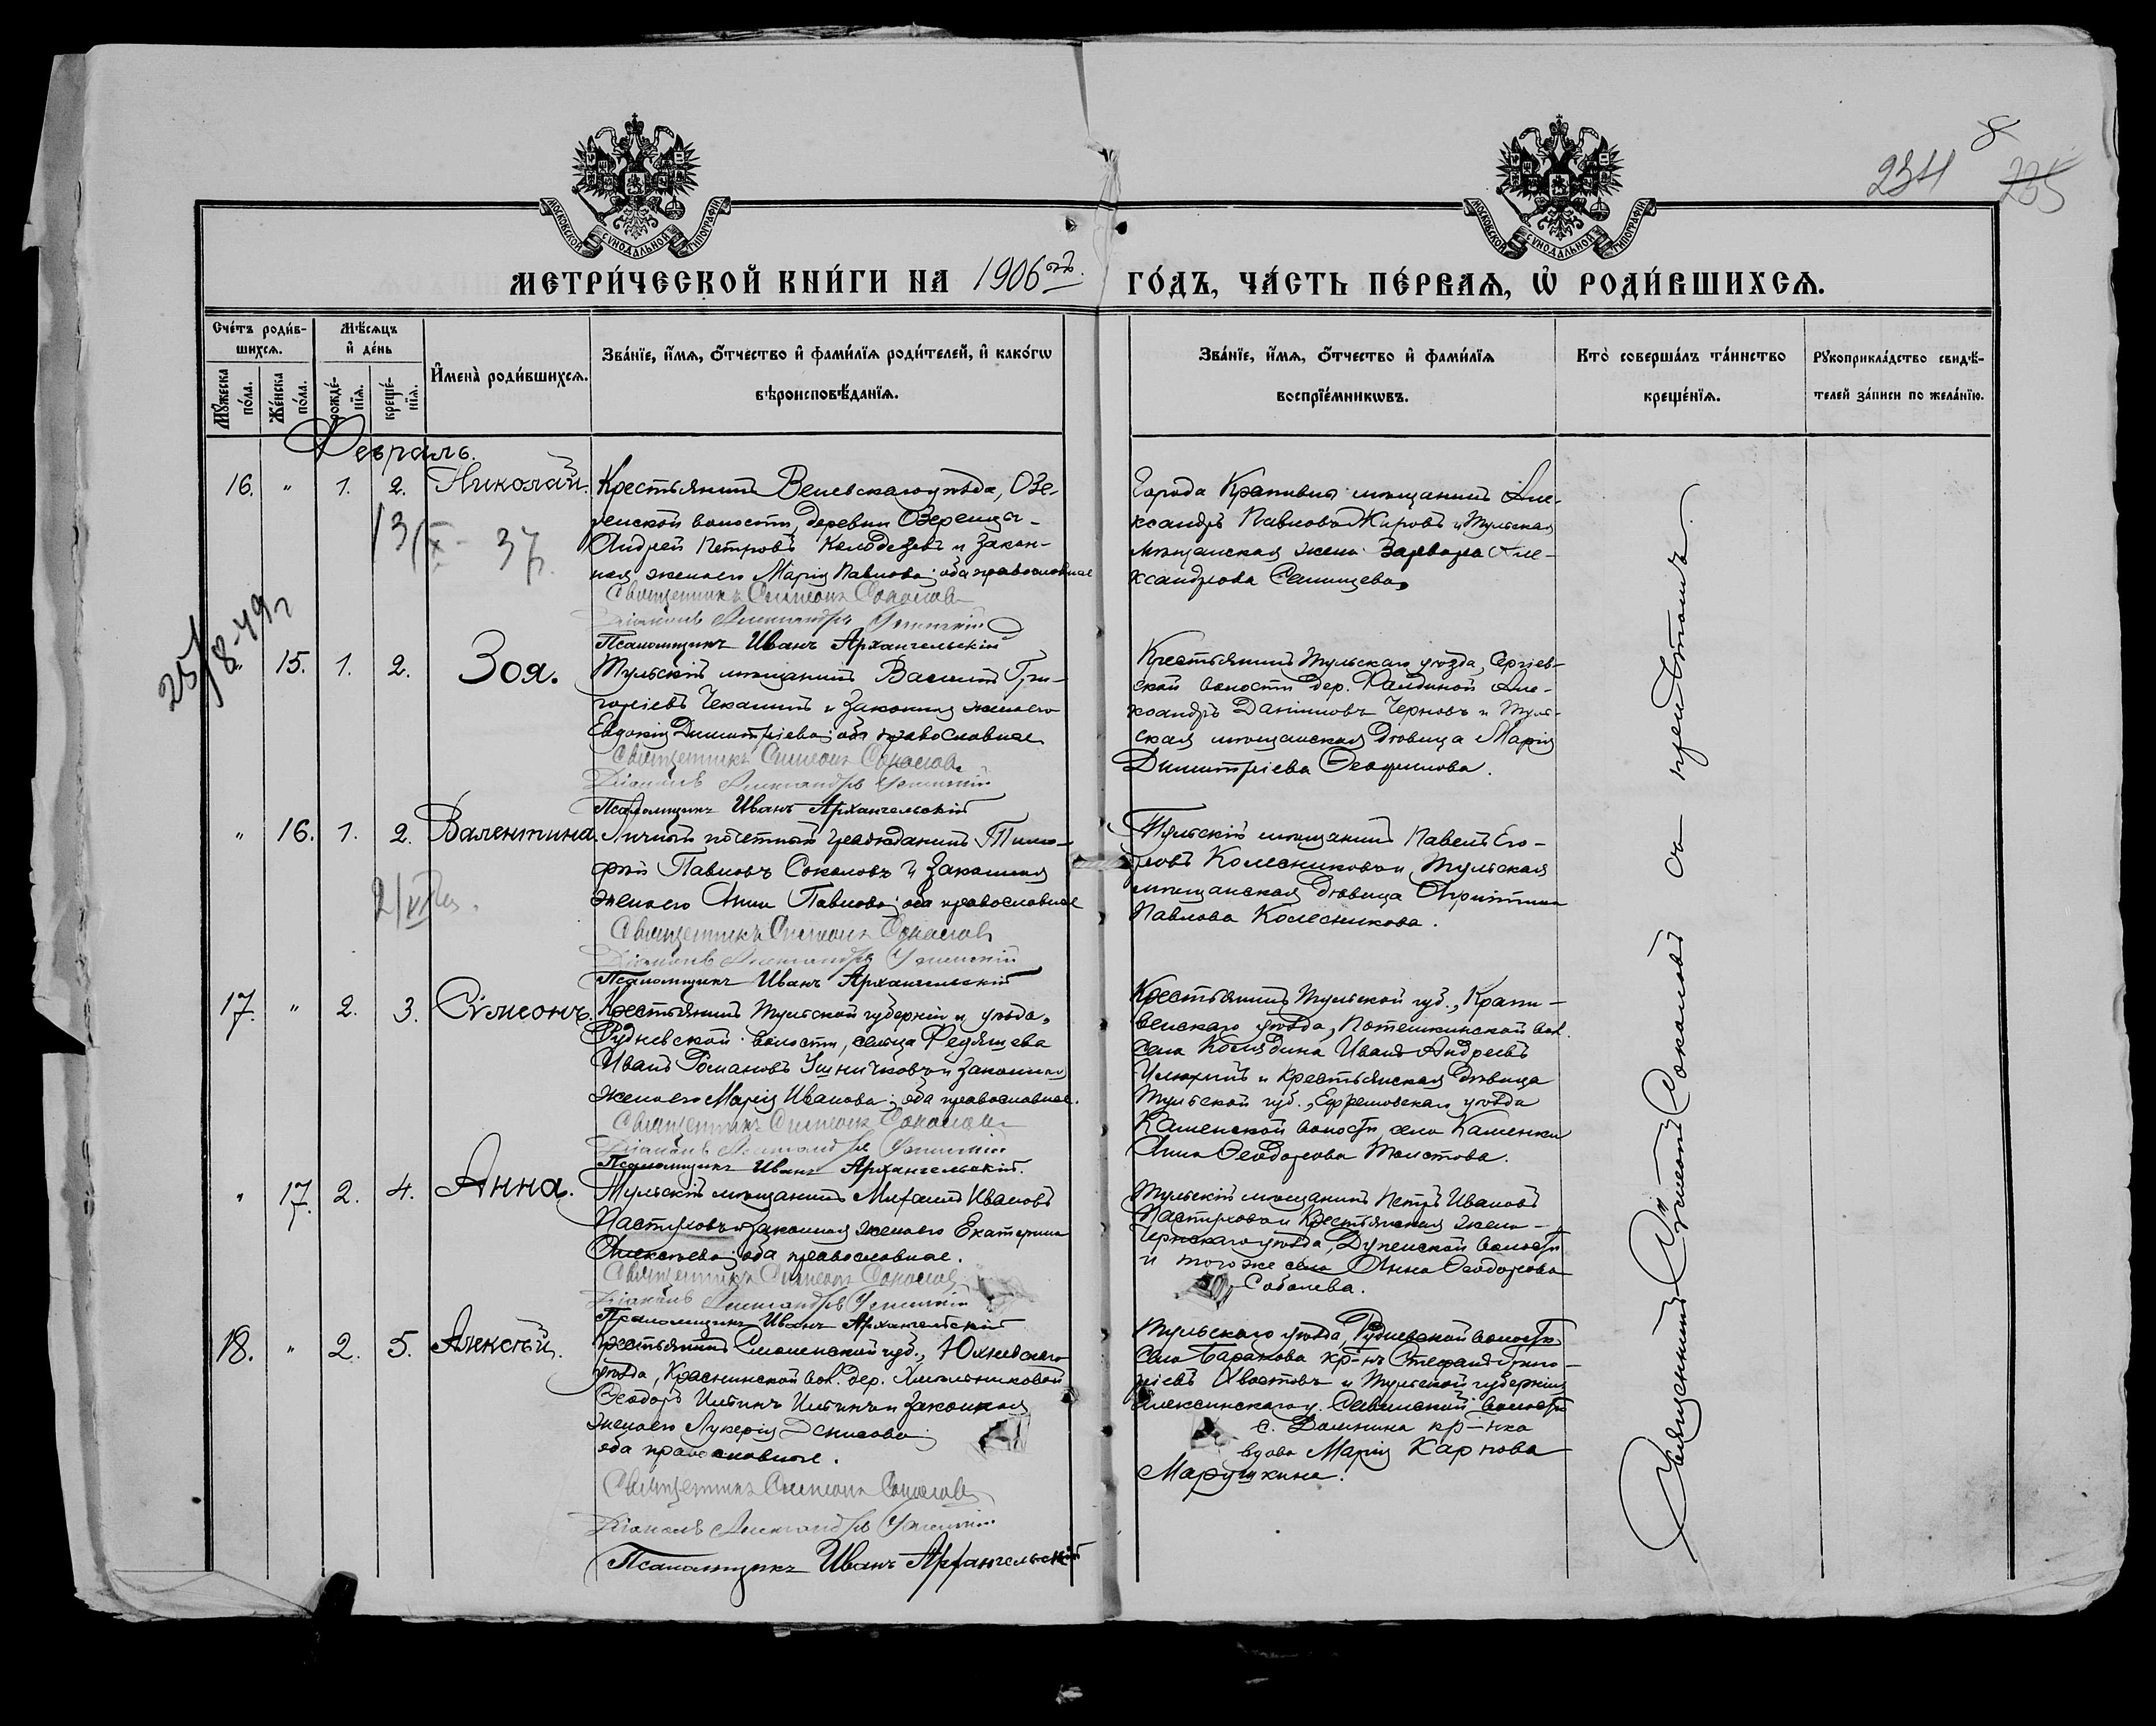 8
234 235
МОСКОВСКОЙ СѴНОДАЛЬНОЙ ТИПОГРАФІИ
МОСКОВСКОЙ СѴНОДАЛЬНОЙ ТИПОГРАФІИ
МЕТРИ́ЧЕСКОЙ КНИ́ГИ НА 1906 ой ГО́ДЪ, ЧА́СТЬ ПЕ́РВАѦ, Ѡ҆ РОДИ́ВШИХСѦ.
Сче́тъ роди́в-
шихсѧ.
Мѣ́сѧцъ
и҆ де́нь
Мꙋ́жеска
по́ла.
Же́нска
по́ла.
рожде́-
нїѧ.
креще́-
нїѧ.
И҆мена̀ роди́вшихсѧ.
Зва́нїе, и҆́мѧ, ѻ҆́тчество и҆ фами́лїѧ роди́телей, и҆ како́гѡ
вѣроисповѣ́данїѧ.
Зва́нїе, и҆́мѧ, ѻ҆́тчество и҆ фами́лїѧ
воспрїе́мникѡвъ.
Кто̀ соверша́лъ та́инство
креще́нїѧ.
Рꙋкоприкла́дство свидѣ́-
телей за́писи по жела́нїю.
Февраль.
16. " 1. 2. Николай. Крестьянинъ Веневскаго уѣзда, Озе-
ренской волости, деревни Озеренца
Андрей Петровъ Колодезевъ и закон-
ная жена его Марія Павлова; оба православные
13/X - 37 г.
Священникъ Симеонъ Соколовъ
Діаконъ Александръ Успенскій
Псаломщикъ Иванъ Архангельскій
Города Крапивны мѣщанинъ Але-
ксандръ Павловъ Жировъ и Тульская
мѣщанская жена Варвара Але-
ксандрова
25/8-49 г
" 15. 1. 2. Зоя. Тульскій мѣщанинъ Василій Гри-
горіевъ Чекалинъ и законная жена его
Евдокія Димитріева; оба православные
Священникъ Симеонъ Соколовъ
Діаконъ Александръ Успенскій
Псаломщикъ Иванъ Архангельскій
Крестьянинъ Тульскаго уѣзда, Сергіев-
ской волости дер. Але-
ксандръ Даніиловъ Черновъ и Туль-
ская мѣщанская дѣвица Марія
Димитріева Ѳеофилова.
" 16. 1. 2. Валентина. Личный почетный гражданинъ Тимо-
фей Павловъ Соколовъ и законная
жена его Анна Павлова; оба православные
Священникъ Симеонъ Соколовъ
Діаконъ Александръ Успенскій
Псаломщикъ Иванъ Архангельскій
Тульскій мѣщанинъ Павелъ Его-
ровъ Колесниковъ и Тульская
мѣщанская дѣвица
Павлова Колесникова.
17. " 2. 3. Сѵмеонъ. Крестьянинъ Тульской губерніи и уѣзда,
Рудневской волости, сельца Федяшева
Иванъ Романовъ Ушничковъ и законная
жена его Марія Иванова; оба православные.
Священникъ Симеонъ Соколовъ
Діаконъ Александръ Успенскій
Псаломщикъ Иванъ Архангельскій.
Крестьянинъ Тульской губ., Крапи-
венскаго уѣзда, Потемкинской вол.
села Иванъ Андреевъ
и крестьянская дѣвица
Тульской губ., Ефремовскаго уѣзда
Каменской волости, села Каменки
Анна Ѳеодорова Толстова.
" 17. 2. 4. Анна. Тульскій мѣщанинъ Михаилъ Ивановъ
Пастуховъ и законная жена его Екатерина
Алексѣева; оба православные.
Священникъ Симеонъ Соколовъ
Діаконъ Александръ Успенскій
Псаломщикъ Иванъ Архангельскій
Тульскій мѣщанинъ Петръ Ивановъ
Пастуховъ и Крестьянская жена
Чернскаго уѣзда, Дупенской волости
и того же села Анна Ѳеодорова
Соболева.
18. " 2. 5. Алексѣй. Крестьянинъ Смоленской губ., Юхновскаго
уѣзда, Краснинской вол. дер. Хмѣльниковой
Ѳеодоръ Илтинъ и законная
жена его Лукерія Денисова;
оба православные.
Священникъ Симеонъ Соколовъ
Діаконъ Александръ Успенскій
Псаломщикъ Иванъ Архангельскій
Тульскаго уѣзда, Рудневской волости
села Баранова кр-нъ Стефанъ Григо-
ріевъ Хвостовъ и Тульской губерніи
Алексинскаго у. Савинской волости
с. Давнина кр-нка
вдова Марія Карпова
Марушкина.
Священникъ Сѵмеонъ Соколовъ съ причтомъ.